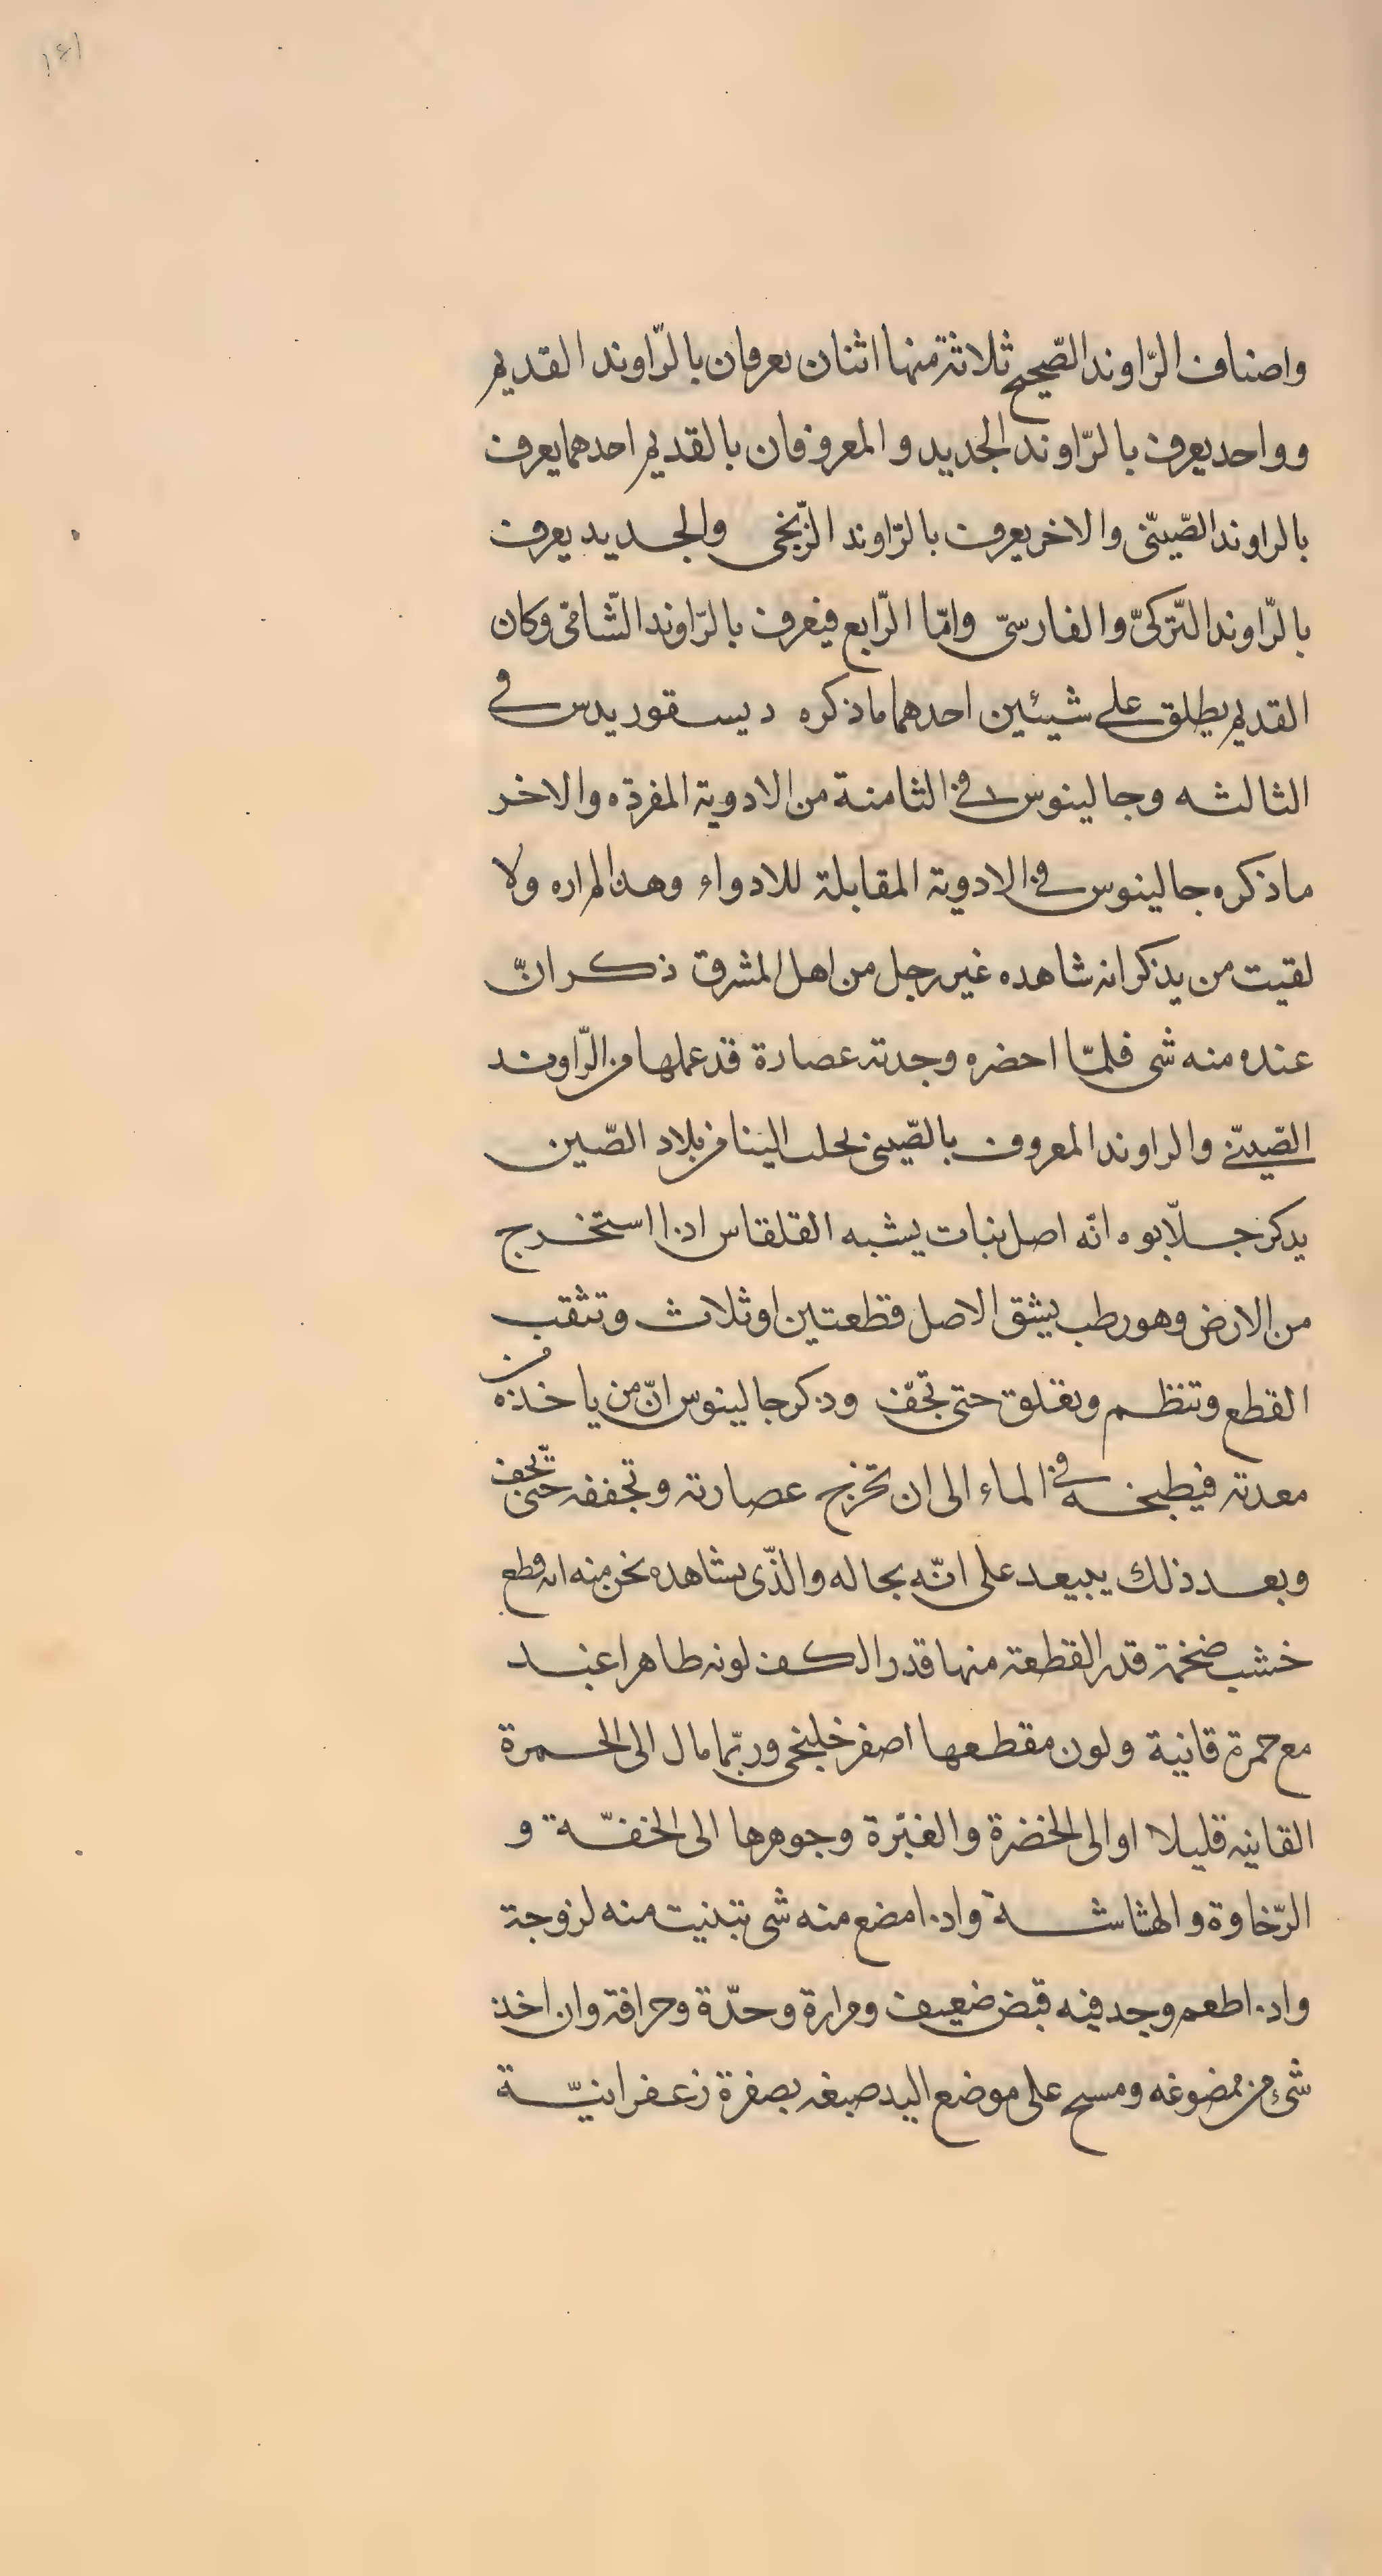 ١٤١
واصناف الرّاوند الصّحيح ثلاثة منها اثنان يعرفان بالرّاوند القديم
وواحد يعرف بالرّاوند الجديد والمعروفان بالقديم احدهما يعرف
بالراوند الصّينّى والاخر يعرف بالرّاوند الزّنجى والجديد يعرف
بالرّاوند التّركىّ والفارسىّ وامّا الرّابع فيعرف بالرّاوند الشّامىّ وكان
القديم يطلق على شيئين احدهما ما ذكره ديسقوريدس فى
الثالثه وجالينوس فى الثامنة من الادوية المفردة والاخر
ما ذكره جالينوس فى الادوية المقابلة للادواء وهذا لم اره ولا
لقيت من يذكر انه شاهده غير رجل من اهل المشرق ذكر انّ
عنده منه شى فلمّا احضره وجدته عصارة قد عملها من الرّاوند
الصّينّى والراوند المعروف بالصّينى يجلب الينا من بلاد الصّين
يذكر جلّابوه انّه اصل نبات يشبه القلقاس اذا استخرج
من الارض وهو رطب يشق الاصل قطعتين او ثلاث وتثقب
القطع وتنظم وتعلق حتى تجفّ وذكر جالينوس انّ من ياخذه من
معدنه فيطبخه فى الماء الى ان تخرج عصارته وتجففه حتّى تجف
وبعد ذلك يبيعه على انّه بحاله والذّى نشاهده نحن منه انه قطع
خشب ضخمة قدر القطعة منها قدر الكف لونه ظاهرا اغبد
مع حمرة قانية ولون مقطعها اصفر خلنجى وربّما مال الى الحمرة
القانيه قليلا او الى الخضرة والغبرة وجوهرها الى الخفّة و
الرّخاوة والهشاشة واذا مضغ منه شى تبنيت منه لزوجة
واذا طعم وجد فيه قبض ضعيف ومرارة وحدّة وحرافة وان اخذ
شىء من ممضوغه ومسح على موضع اليد صبغه بصفرة زعفرانيّة